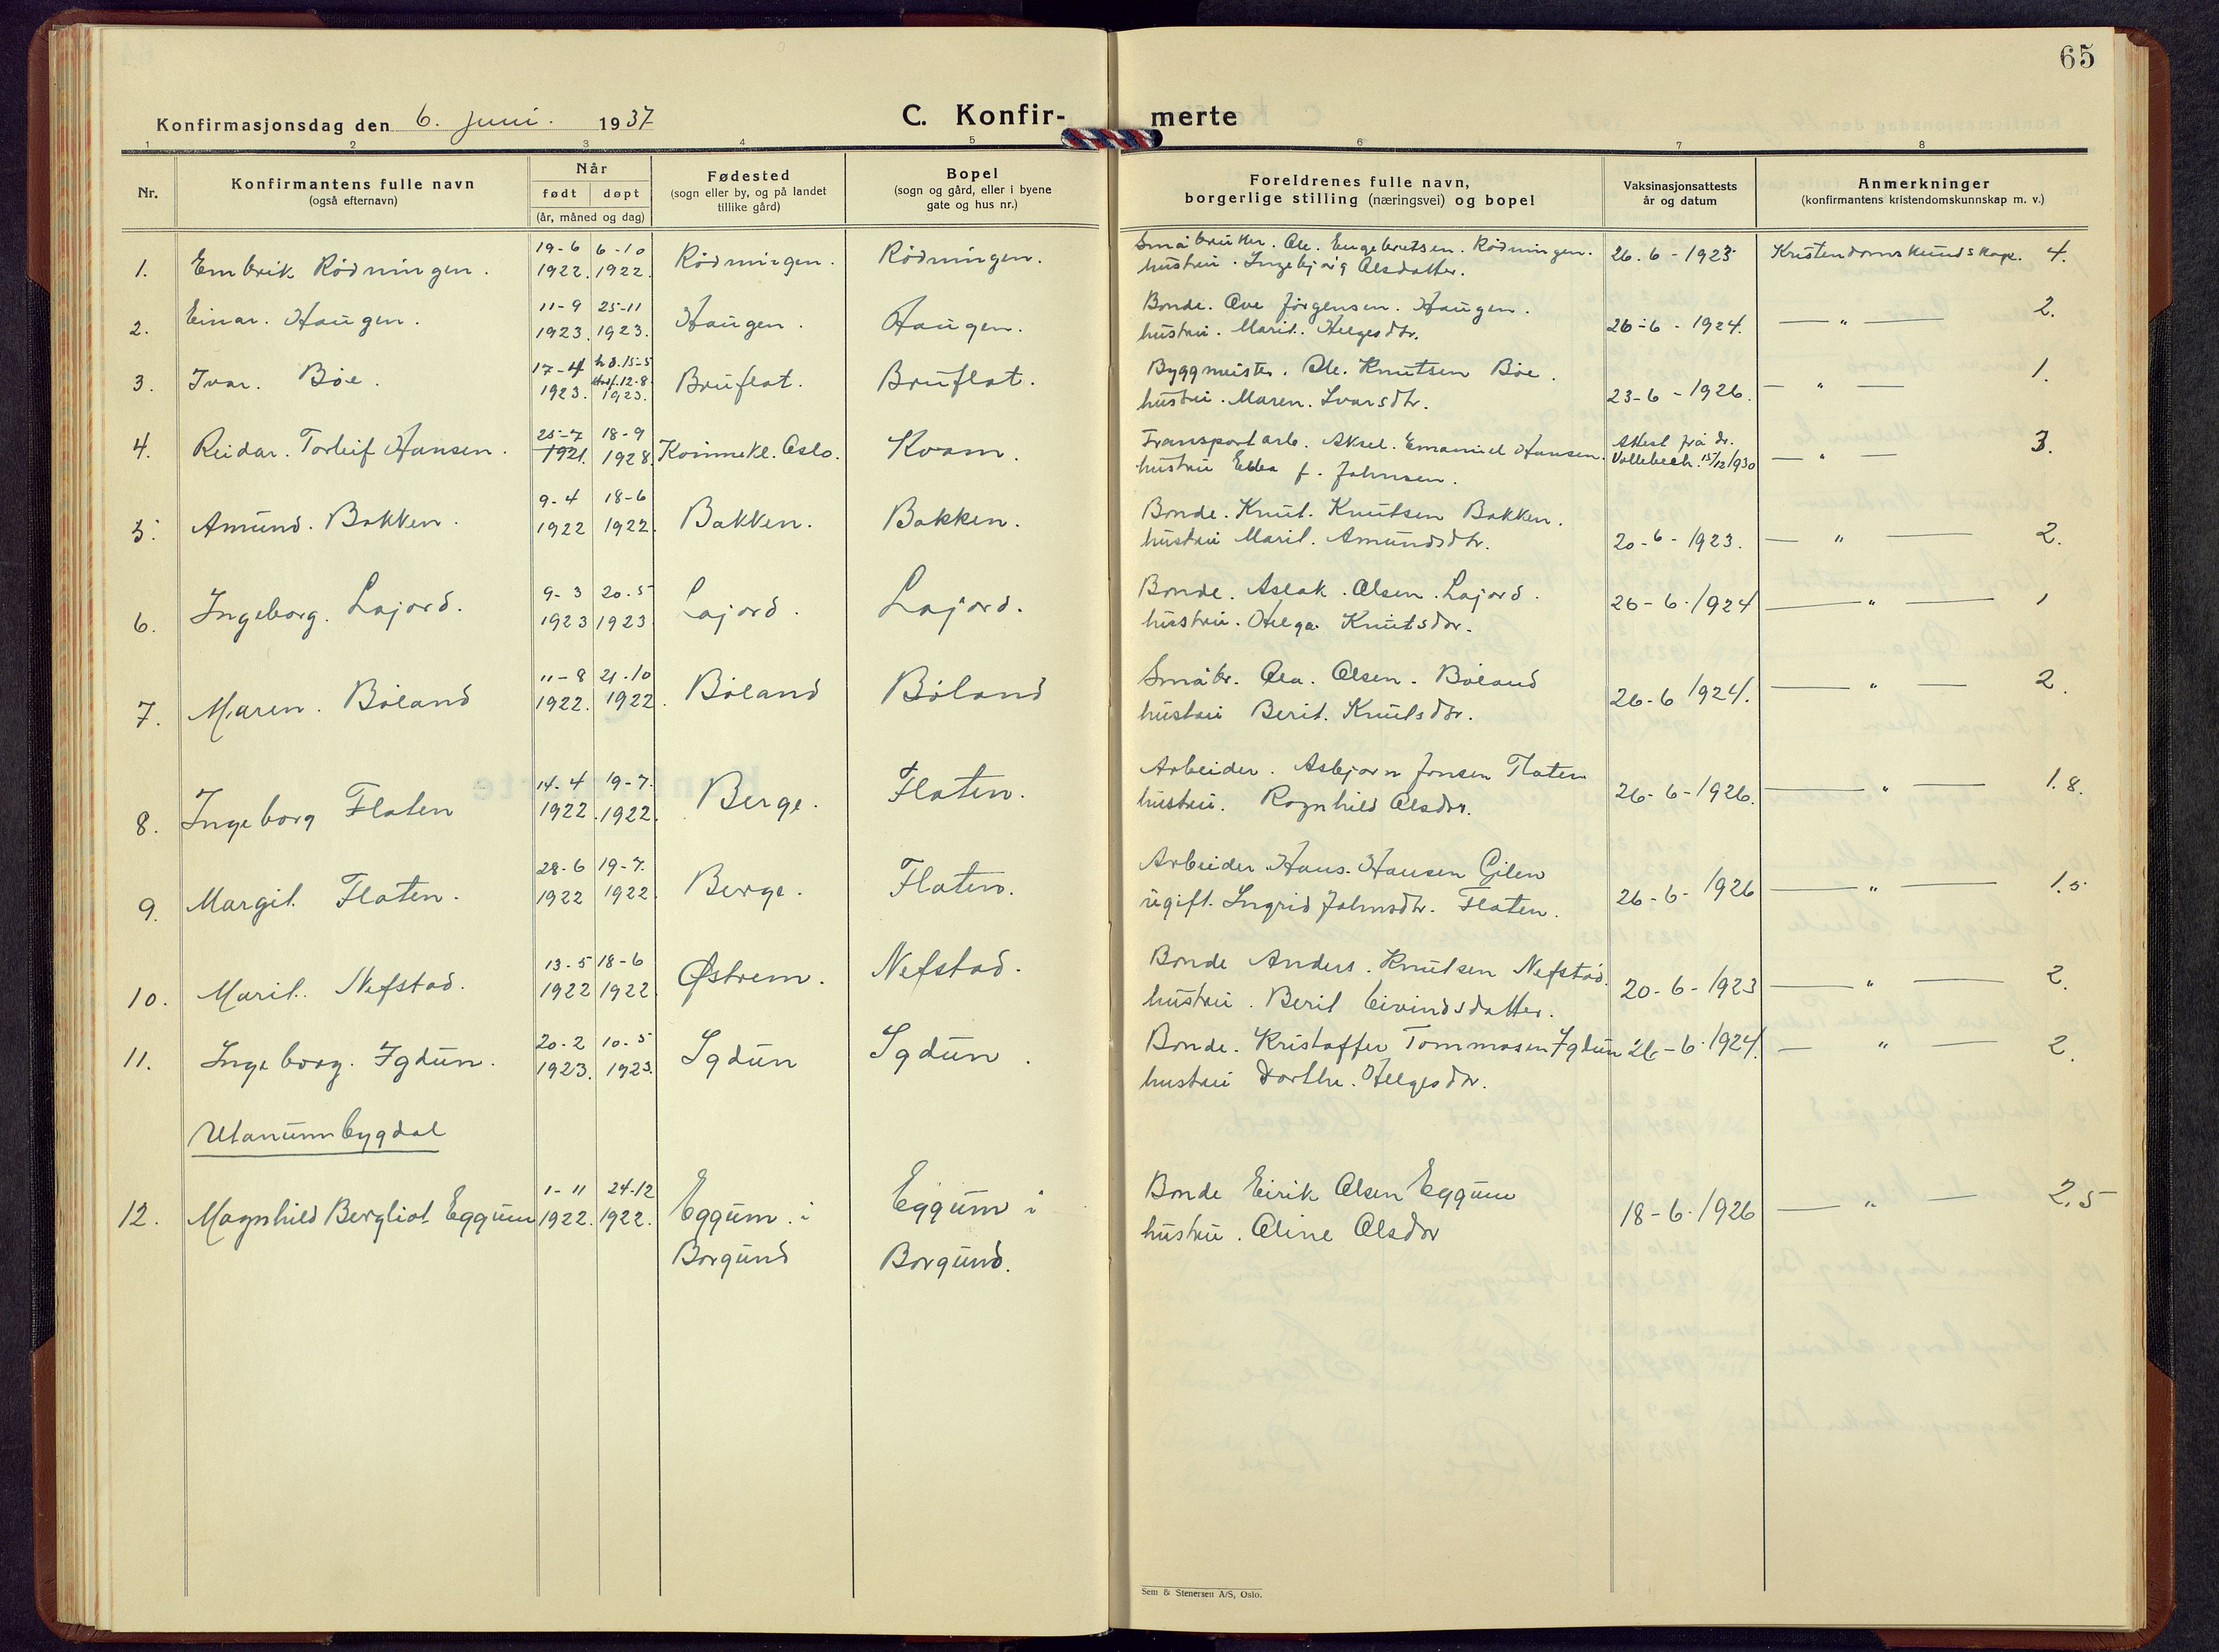 65
Konfirmasjonsdag den 6. juni. 1937
C. Konfir- merte
1 2 3 4 5 6 7 8
Nr.
Konfirmantens fulle navn
(også efternavn)
Når
født døpt
(år, måned og dag)
Fødested
(sogn eller by, og på landet
tillike gård)
Bopel
(sogn og gård, eller i byene
gate og hus nr.)
Foreldrenes fulle navn,
borgerlige stilling (næringsvei) og bopel
Vaksinasjonsattests
år og datum
Anmerkninger
(konfirmantens kristendomskunnskap m. v.)
19-6 6-10 Småbruker. Ole. Engebretsen. Rödningen.
1. Embrik Rödningen. 1922. 1922. Rödningen. Rödningen. hustru. Ingebjörg Olsdatter. 26.6-1923 Kristendomskundskap. 4.
11-9 25-11 Bonde. Ove Jörgensen. Haugen.
2. Einar. Haugen. 1923. 1923. Haugen. Haugen. hustru. Marit. Helgesdtr. 26-6-1924. — " — 2.
17-4 h.d. 15-5 12-8 Byggmeister. Ole. Knutsen Böe.
3. Ivar. Böe. 1923. 1923. Bruflat. Bruflat. hustru. Maren. Ivarsdtr. 23-6-1926. — " — 1.
25-7 18-9 Transportarb. Aksel. Emanuel Hansen. Attest frå dr.
4. Reidar. Torleif Hansen. 1921. 1928. Oslo. Kvam. hustru Ebba f. Johnsen. 15/12 1930 — " — 3.
9-4 18-6 Bonde. Knut. Knutsen Bakken.
5. Amund. Bakken. 1922 1922. Bakken. Bakken. hustru Marit. Amundsdtr. 20-6-1923. — " — 2.
9-3 20.5 Bonde. Aslak. Olsen. Lajord.
6. Ingeborg. Lajord. 1923 1923 Lajord. Lajord. hustru. Helga. Knutsdtr. 26-6-1924 — " — 1
11-8 21.10 Småbr. Ola. Olsen. Böland
7. Maren. Böland 1922. 1922. Böland Böland hustru Berit. Knutsdtr. 26-6 1924. — " — 2.
14-4 19-7. Arbeider. Asbjörn Jonsen Flaten
8. Ingeborg Flaten 1922. 1922. Berge. Flaten. hustru. Ragnhild Olsdtr. 26-6-1926. — " — 1.8.
28-6 19-7. Arbeider. Hans. Hansen Gilen
9. Margit. Flaten. 1922 1922. Berge. Flaten. ugift. Ingrid Johnsdtr. Flaten. 26-6-1926 — " — 1.5
13-5 18-6 Bonde Anders. Knutsen Nefstad.
10. Marit. Nefstad. 1922 1922. Østrem. Nefstad. hustru. Berit Eivindsdatter. 20-6-1923 — " — 2.
20-2 10-5 Bonde. Kristoffer Tommasen Igdun 26-6-1924. — " — 2.
11. Ingeborg. Igdun. 1923. 1923. Igdun Igdun. hustru Dorthe. Helgesdtr.
Utanumbygdal
1-11 24-12 Bonde Eirik Olsen Eggum
12. Magnhild Bergliot Eggum 1922. 1922. Eggum i Eggum i hustru. Oline Olsdtr 18-6-1926 — " — 2,5
Borgund Borgund.
Sem & Stenersen A/S, Oslo.